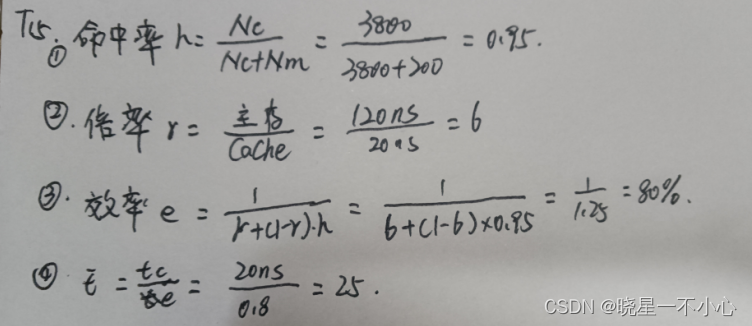 T15. ① 命中率 h = Nc / (Nc+Nm) = 3800 / (3800+200) = 0.95.
②. 倍率 r = 主存 / Cache = 120ns / 20ns = 6
③. 效率 e = 1 / (r+(1-r)·h) = 1 / (6+(1-6)×0.95) = 1 / 1.25 = 80%.
④ t̄ = tc / e = 20ns / 0.8 = 25.
CSDN @晓星一不小心